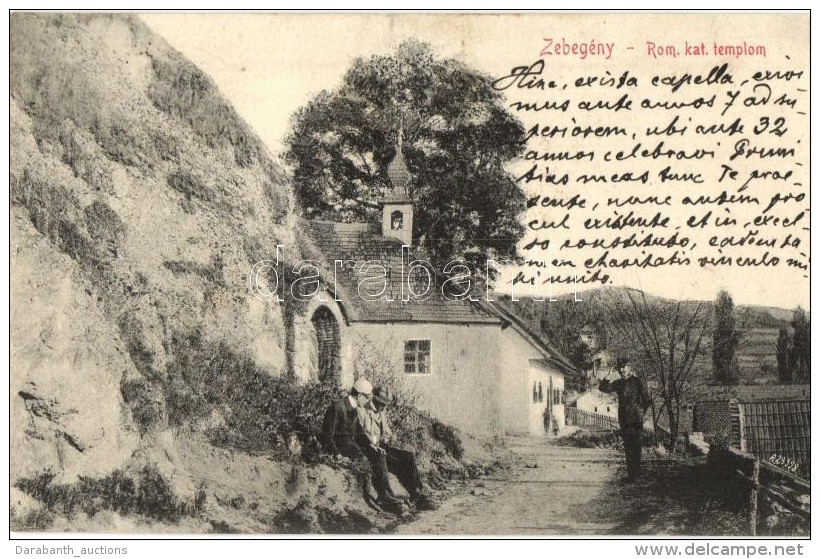 Zebegény - Rom. kat. templom
Hinc, exista capella, exivi
mus ante annos 7 ad su
periorem, ubi ante 32
annos celebravi Primi
tias meas tunc Te prae
sente, nunc autem pro
cul existente, et in excel
so constituto, eadem ta
men charitatis vinculo mi
hi unito.
darabanth.com
R29778
Darabanth_auctions
www.delcampe.net